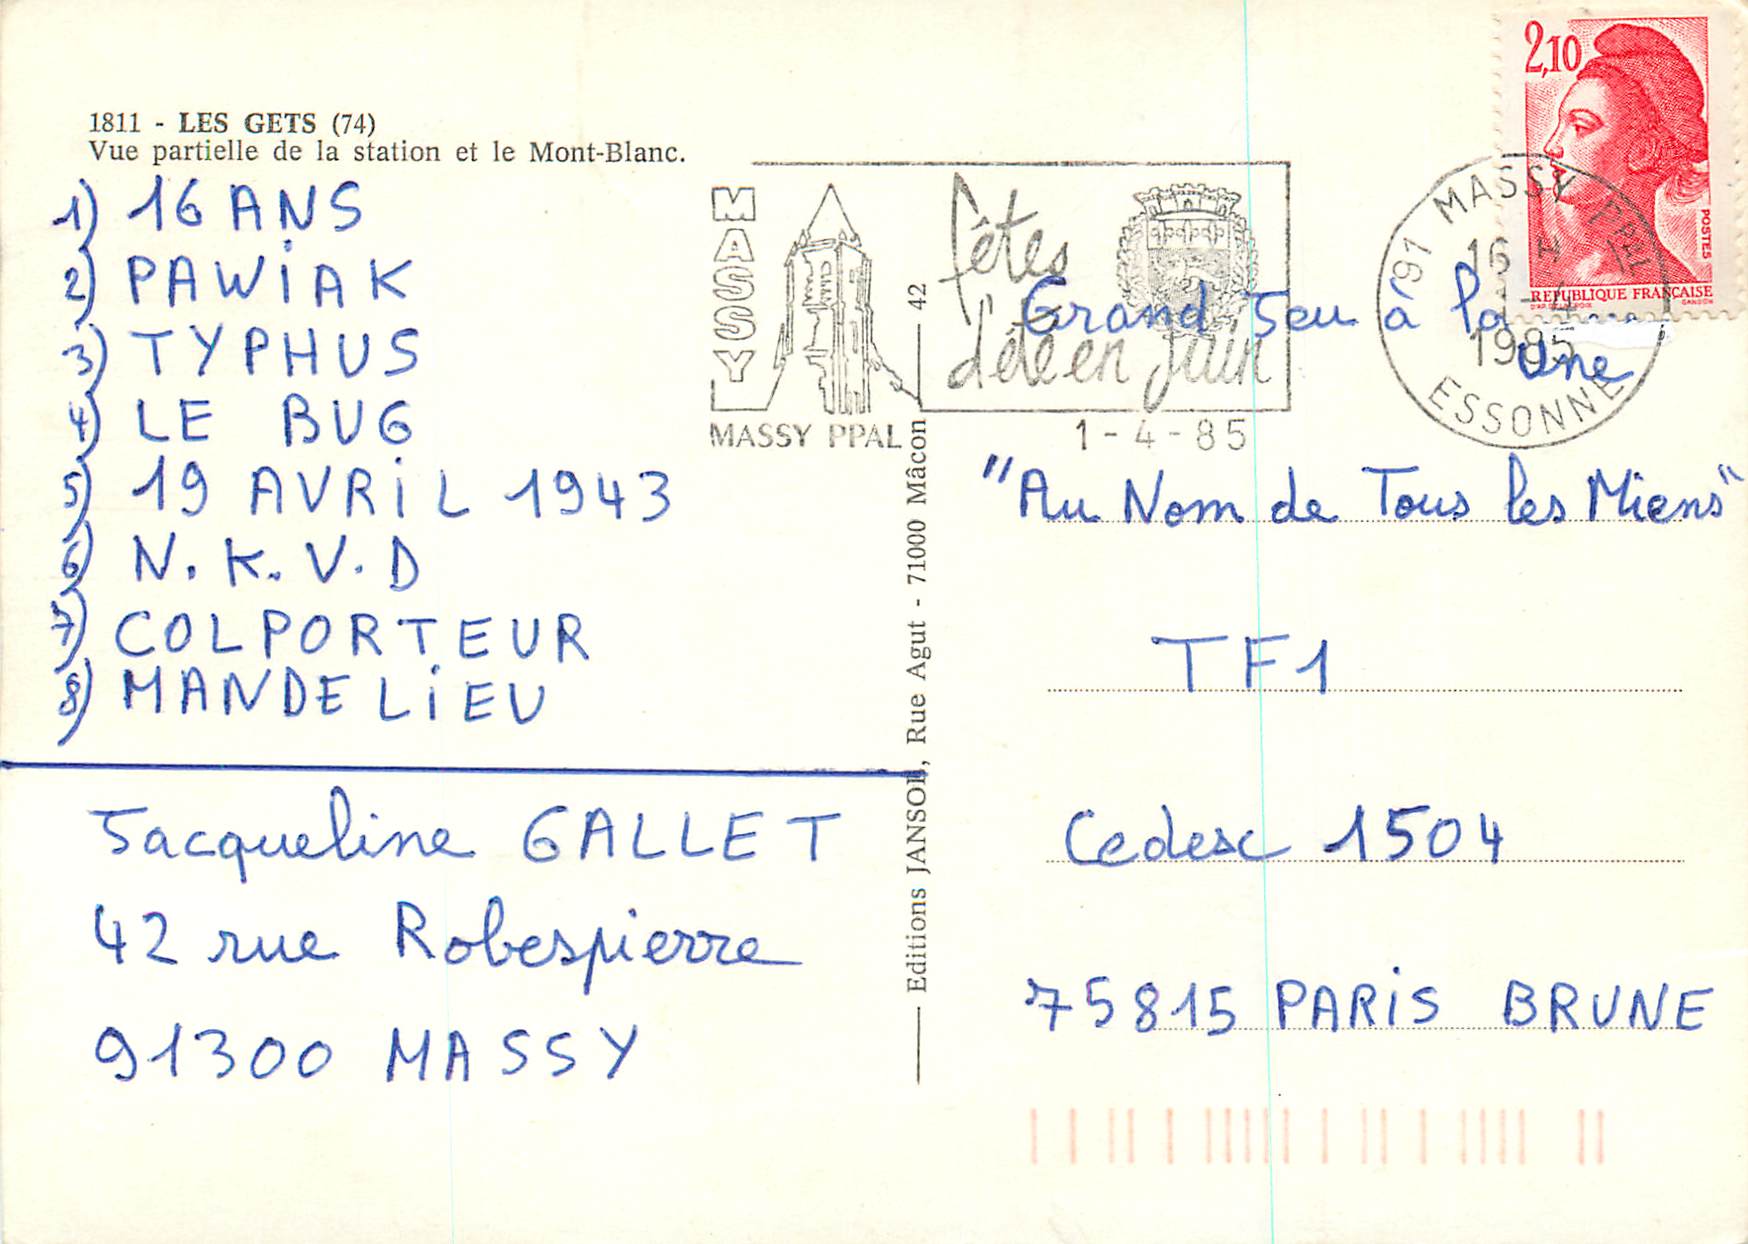 1811 - LES GETS (74)
Vue partielle de la station et le Mont-Blanc.
1) 16 ANS
2) PAWIAK
3) TYPHUS
4) LE BUG
5) 19 AVRIL 1943
6) N.K.V.D
7) COLPORTEUR
8) MANDELIEU
Jacqueline GALLET
42 rue Robespierre
91300 MASSY
Editions JANSOL, Rue Agut - 71000 Mâcon 42
MASSY
MASSY PPAL
fêtes
d'été en juin
1-4-85
2,10
POSTES
REPUBLIQUE FRANÇAISE
91 MASSY PPAL
16 H
1-4
1985
ESSONNE
"Grand Jeu à la
Une
"Au Nom de Tous les Miens"
TF1
Cedesc 1504
75815 PARIS BRUNE